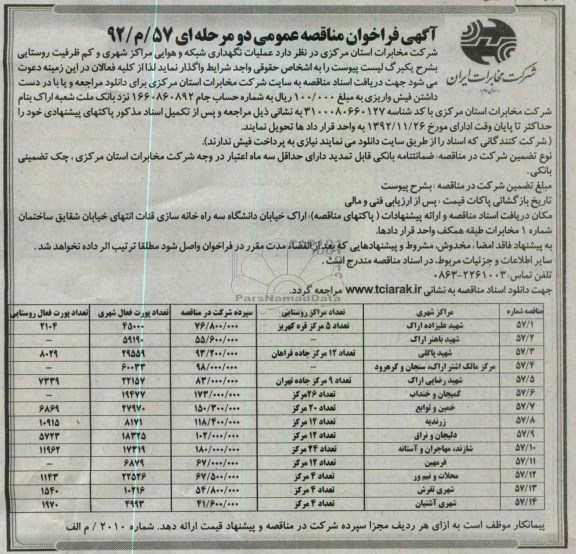 آگهی فراخوان مناقصه عمومی دو مرحله ای ۵۷/م/۹۲
شرکت مخابرات ایران
شرکت مخابرات استان مرکزی در نظر دارد عملیات نگهداری شبکه و هوایی مراکز شهری و کم ظرفیت روستایی
بشرح یکبرگ لیست پیوست را به اشخاص حقوقی واجد شرایط واگذار نماید لذا از کلیه فعالان در این زمینه دعوت
می شود جهت دریافت اسناد مناقصه به سایت شرکت مخابرات استان مرکزی برای دانلود مراجعه و یا با در دست
داشتن فیش واریزی به مبلغ ۱۰۰/۰۰۰ ریال به شماره حساب جام ۱۶۶۰۸۶۰۸۹۲ نزد بانک ملت شعبه اراک بنام
شرکت مخابرات استان مرکزی با کد شناسه ۳۱۰۰۰۸۰۶۶۰۱۲۷ به نشانی ذیل مراجعه و پس از تکمیل اسناد مذکور پاکتهای پیشنهادی خود را
حداکثر تا پایان وقت اداری مورخ ۱۳۹۲/۱۱/۲۶ به واحد قرار داد ها تحویل نمایند.
( شرکت کنندگانی که اسناد را از طریق سایت دانلود می نمایند نیازی به پرداخت فیش ندارند).
نوع تضمین شرکت در مناقصه: ضمانتنامه بانکی قابل تمدید دارای حداقل سه ماه اعتبار در وجه شرکت مخابرات استان مرکزی ، چک تضمینی
بانکی.
مبلغ تضمین شرکت در مناقصه : بشرح پیوست
تاریخ بازگشائی پاکات قیمت : پس از ارزیابی فنی و مالی
مکان دریافت اسناد مناقصه و ارائه پیشنهادات ( پاکتهای مناقصه): اراک خیابان دانشگاه سه راه خانه سازی قنات انتهای خیابان شقایق ساختمان
شماره ۱ مخابرات طبقه همکف واحد قرار دادها.
به پیشنهاد فاقد امضا ، مخدوش، مشروط و پیشنهادهایی که بعد از انقضاء مدت مقرر در فراخوان واصل شود مطلقا ترتیب اثر داده نخواهد شد .
سایر اطلاعات و جزئیات مربوط، در اسناد مناقصه مندرج است .
تلفن تماس: ۲۲۶۱۰۰۳-۰۸۶۳
جهت دانلود اسناد مناقصه به نشانی www.tciarak.ir مراجعه گردد.
ParsNamadData
شماره مناقصه مراکز شهری تعداد مراکز روستایی سپرده شرکت در مناقصه تعداد پورت فعال شهری تعداد پورت فعال روستایی
۵۷/۱ شهید علیزاده اراک تعداد ۵ مرکز قره کهریز ۷۶/۸۰۰/۰۰۰ ۴۵۰۰۰ ۲۱۰۴
۵۷/۲ شهید باهنر اراک – ۵۵/۶۰۰/۰۰۰ ۵۹۱۹۰ –
۵۷/۳ شهید پاکلی تعداد ۱۲ مرکز جاده فراهان ۹۳/۲۰۰/۰۰۰ ۲۹۵۵۹ ۸۰۲۹
۵۷/۴ مرکز مالک اشتر اراک، سنجان و کرهرود – ۹۸/۰۰۰/۰۰۰ ۶۰۰۳۳ –
۵۷/۵ شهید رضایی اراک تعداد ۹ مرکز جاده تهران ۸۳/۰۰۰/۰۰۰ ۲۲۱۵۷ ۷۳۳۹
۵۷/۶ کمیجان و خنداب تعداد ۲۶مرکز ۱۷۳/۰۰۰/۰۰۰ ۱۹۴۷۷
۵۷/۷ خمین و توابع تعداد ۲۰ مرکز ۱۵۰/۳۰۰/۰۰۰ ۲۷۹۷۰ ۶۸۶۹
۵۷/۸ زرندیه تعداد ۱۲ مرکز ۱۱۸/۴۰۰/۰۰۰ ۸۱۷۱ ۱۰۹۱۵
۵۷/۹ دلیجان و نراق تعداد ۱۲ مرکز ۱۰۲/۰۰۰/۰۰۰ ۱۸۳۲۵ ۵۷۲۳
۵۷/۱۰ شازند، مهاجران و آستانه تعداد ۲۴ مرکز ۱۸۰/۰۰۰/۰۰۰ ۱۷۳۱۹ ۱۱۹۶۲
۵۷/۱۱ فرمهین تعداد ۱۲ مرکز ۶۷/۰۰۰/۰۰۰ ۶۸۷۹ –
۵۷/۱۲ محلات و نیم ور تعداد ۴ مرکز ۶۷/۵۰۰/۰۰۰ ۲۲۵۲۶ ۱۱۴۳
۵۷/۱۳ شهری تفرش تعداد ۴ مرکز ۵۴/۸۰۰/۰۰۰ ۱۰۲۱۶ ۱۵۴۰
۵۷/۱۴ شهری آشتیان تعداد ۴ مرکز ۴۱/۶۰۰/۰۰۰ ۴۹۹۴ ۱۹۷۰
پیمانکار موظف است به ازای هر ردیف مجزا سپرده شرکت در مناقصه و پیشنهاد قیمت ارائه دهد. شماره ۲۰۱۰ / م الف